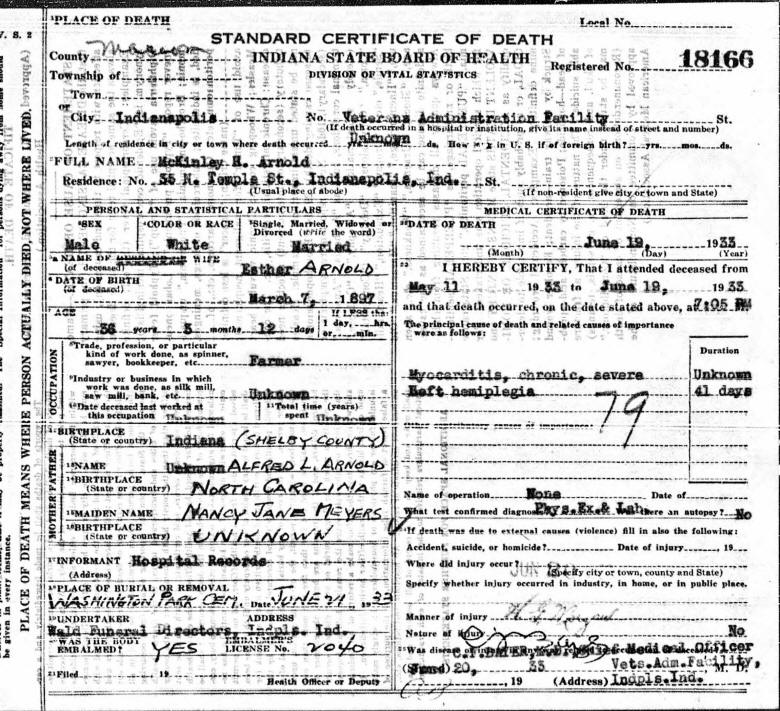 V. S. 2
PLACE OF DEATH MEANS WHERE PERSON ACTUALLY DIED, NOT WHERE LIVED.
be given in every instance.
1PLACE OF DEATH
Local No.
STANDARD CERTIFICATE OF DEATH
County Marion
INDIANA STATE BOARD OF HEALTH
Registered No. 18166
Township of
DIVISION OF VITAL STATISTICS
Town
or
City Indianapolis No. Veterans Administration Facility St.
(If death occurred in a hospital or institution, give its name instead of street and number)
Length of residence in city or town where death occurred yrs. Unknown ds. How in U. S. if of foreign birth? yrs. mos. ds.
2FULL NAME McKinley H. Arnold
Residence: No. 35 N. Temple St., Indianapolis, Ind. St.
(Usual place of abode)
(If non-resident give city or town and State)
PERSONAL AND STATISTICAL PARTICULARS
3SEX
Male
4COLOR OR RACE
White
5Single, Married, Widowed or
Divorced (write the word)
Married
NAME OF WIFE
(of deceased) Esther ARNOLD
6 DATE OF BIRTH
(of deceased)
March 7, 1897
7 AGE
36 years 3 months 12 days
If LESS than
1 day, hrs.
or min.
OCCUPATION
8Trade, profession, or particular
kind of work done, as spinner,
sawyer, bookkeeper, etc. Farmer
9Industry or business in which
work was done, as silk mill,
saw mill, bank, etc. Unknown
10Date deceased last worked at
this occupation Unknown
11Total time (years)
spent Unknown
12BIRTHPLACE
(State or country) Indiana (SHELBY COUNTY)
FATHER
13NAME Unknown ALFRED L. ARNOLD
14BIRTHPLACE
(State or country) NORTH CAROLINA
MOTHER
15MAIDEN NAME NANCY JANE MEYERS
16BIRTHPLACE
(State or country) UNKNOWN
17INFORMANT Hospital Records
(Address)
18PLACE OF BURIAL OR REMOVAL
WASHINGTON PARK CEM. Date JUNE 21, 1933
19UNDERTAKER ADDRESS
Wald Funeral Directors, Indpls. Ind.
WAS THE BODY
EMBALMED? YES
EMBALMER'S
LICENSE No. 2040
21Filed 19
Health Officer or Deputy
MEDICAL CERTIFICATE OF DEATH
DATE OF DEATH
June 19, 1933
(Month) (Day) (Year)
22 I HEREBY CERTIFY, That I attended deceased from
May 11 1933 to June 19, 1933
and that death occurred, on the date stated above, at 7:05 PM
The principal cause of death and related causes of importance
were as follows:
Duration
Myocarditis, chronic, severe Unknown
Left hemiplegia 41 days
Other contributory causes of importance:
79
Name of operation None Date of
What test confirmed diagnosis Phys.Ex.& Lab. Was there an autopsy? No
If death was due to external causes (violence) fill in also the following:
Accident, suicide, or homicide? Date of injury 19
Where did injury occur?
(Specify city or town, county and State)
Specify whether injury occurred in industry, in home, or in public place.
Manner of injury
Nature of injury No
Medical Officer
(Signed) June 20, 33 Vets.Adm.Facility, M. D.
, 19 (Address) Indpls.Ind.